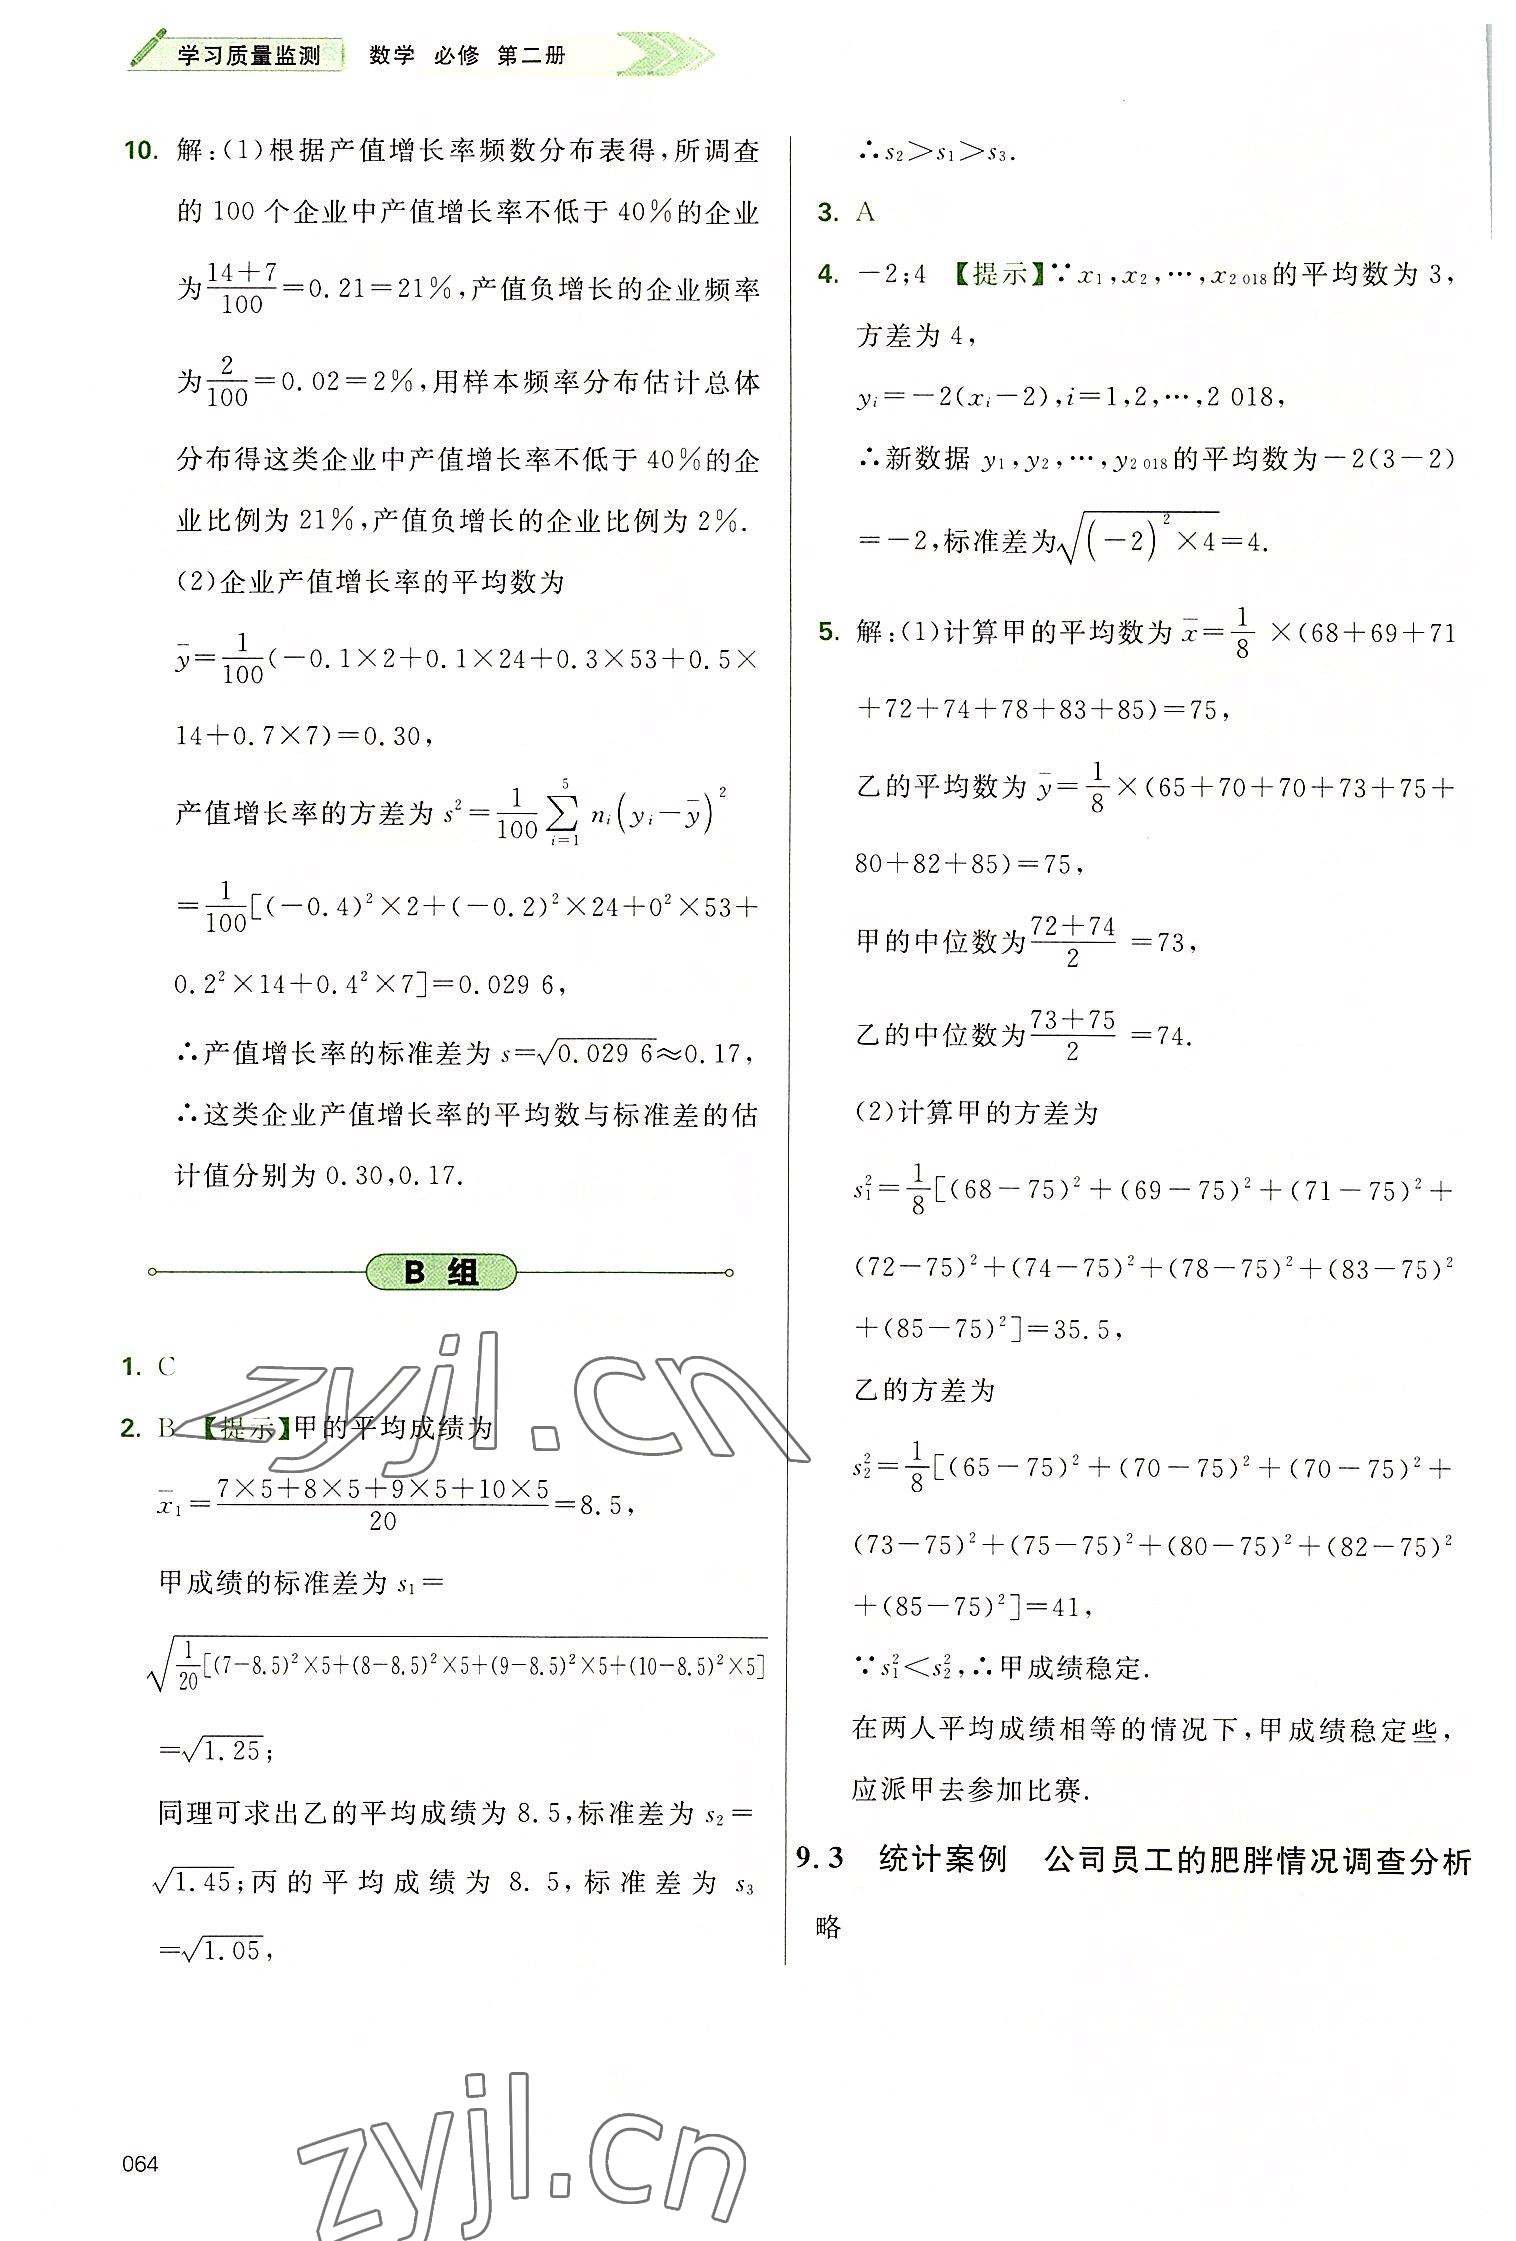 学习质量监测 数学 必修 第二册
10. 解:(1)根据产值增长率频数分布表得,所调查
的 100 个企业中产值增长率不低于 40%的企业
为\frac{14+7}{100}=0.21=21%,产值负增长的企业频率
为\frac{2}{100}=0.02=2%,用样本频率分布估计总体
分布得这类企业中产值增长率不低于 40%的企
业比例为 21%,产值负增长的企业比例为 2%.
(2)企业产值增长率的平均数为
\bar{y}=\frac{1}{100}(-0.1×2+0.1×24+0.3×53+0.5×
14+0.7×7)=0.30,
产值增长率的方差为 s^2=\frac{1}{100}\sum_{i=1}^{5} n_i(y_i-\bar{y})^2
=\frac{1}{100}[(-0.4)^2×2+(-0.2)^2×24+0^2×53+
0.2^2×14+0.4^2×7]=0.029 6,
∴产值增长率的标准差为 s=\sqrt{0.029 6}≈0.17,
∴这类企业产值增长率的平均数与标准差的估
计值分别为 0.30,0.17.
B 组
1. C
2. B 【提示】甲的平均成绩为
\bar{x}_1=\frac{7×5+8×5+9×5+10×5}{20}=8.5,
甲成绩的标准差为 s_1=
\sqrt{\frac{1}{20}[(7-8.5)^2×5+(8-8.5)^2×5+(9-8.5)^2×5+(10-8.5)^2×5]}
=\sqrt{1.25};
同理可求出乙的平均成绩为 8.5,标准差为 s_2=
\sqrt{1.45};丙的平均成绩为 8.5,标准差为 s_3
=\sqrt{1.05},
∴s_2>s_1>s_3.
3. A
4. -2;4 【提示】∵x_1,x_2,…,x_{2 018}的平均数为 3,
方差为 4,
y_i=-2(x_i-2),i=1,2,…,2 018,
∴新数据 y_1,y_2,…,y_{2 018}的平均数为-2(3-2)
=-2,标准差为\sqrt{(-2)^2×4}=4.
5. 解:(1)计算甲的平均数为 \bar{x}=\frac{1}{8}×(68+69+71
+72+74+78+83+85)=75,
乙的平均数为 \bar{y}=\frac{1}{8}×(65+70+70+73+75+
80+82+85)=75,
甲的中位数为\frac{72+74}{2}=73,
乙的中位数为\frac{73+75}{2}=74.
(2)计算甲的方差为
s_1^2=\frac{1}{8}[(68-75)^2+(69-75)^2+(71-75)^2+
(72-75)^2+(74-75)^2+(78-75)^2+(83-75)^2
+(85-75)^2]=35.5,
乙的方差为
s_2^2=\frac{1}{8}[(65-75)^2+(70-75)^2+(70-75)^2+
(73-75)^2+(75-75)^2+(80-75)^2+(82-75)^2
+(85-75)^2]=41,
∵s_1^2<s_2^2,∴甲成绩稳定.
在两人平均成绩相等的情况下,甲成绩稳定些,
应派甲去参加比赛.
9.3 统计案例 公司员工的肥胖情况调查分析
略
064
zyjl.cn
zyjl.cn